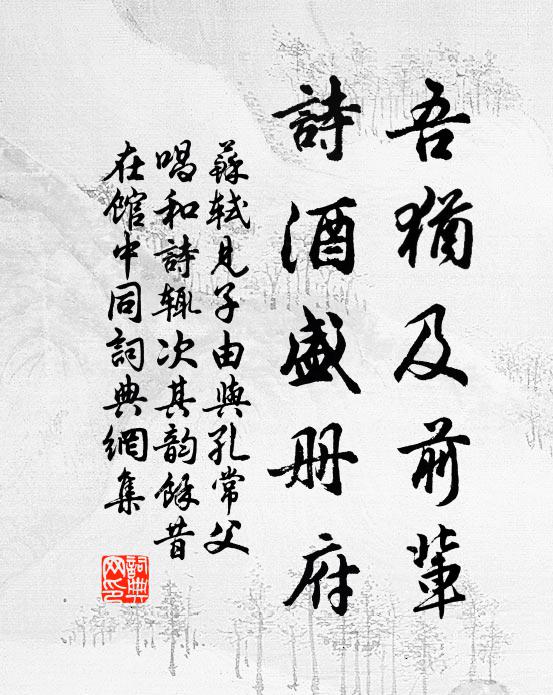 吾猶及前輩
詩酒盛册府
蘇軾見子由與孔常父
唱和詩輒次其韵餘昔
在館中同詞典網集
詞典网印